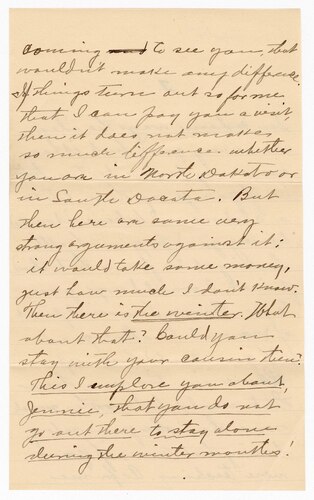 coming and to see you, that
wouldn't make any difference.
If things turn out so for me
that I can pay you a visit,
then it does not makes
so much difference whether
you are in North Dakoto or
in South Dacota. But
then here are some very
strong arguments against it:
it would take some money,
just how much I don't know.
Then there is the winter. What
about that? Could you
stay with your cousin then?
This I implore you about,
Jennie, that you do not
go out there to stay alone
during the winter months!